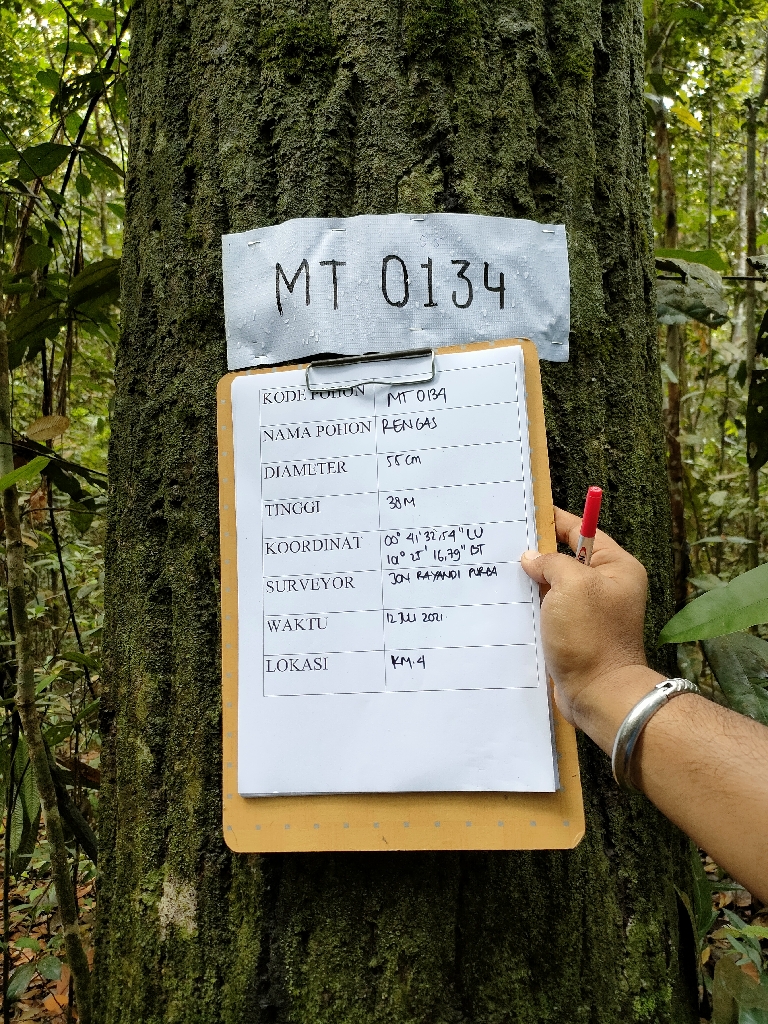 MT 0134
KODE POHON MT 0134
NAMA POHON RENGAS
DIAMETER 55 cm
TINGGI 38 M
KOORDINAT 00° 41' 32,54" LU
101° 25' 16,79" BT
SURVEYOR JON RAYANDI PURBA
WAKTU 12 JULI 2021
LOKASI KM.4